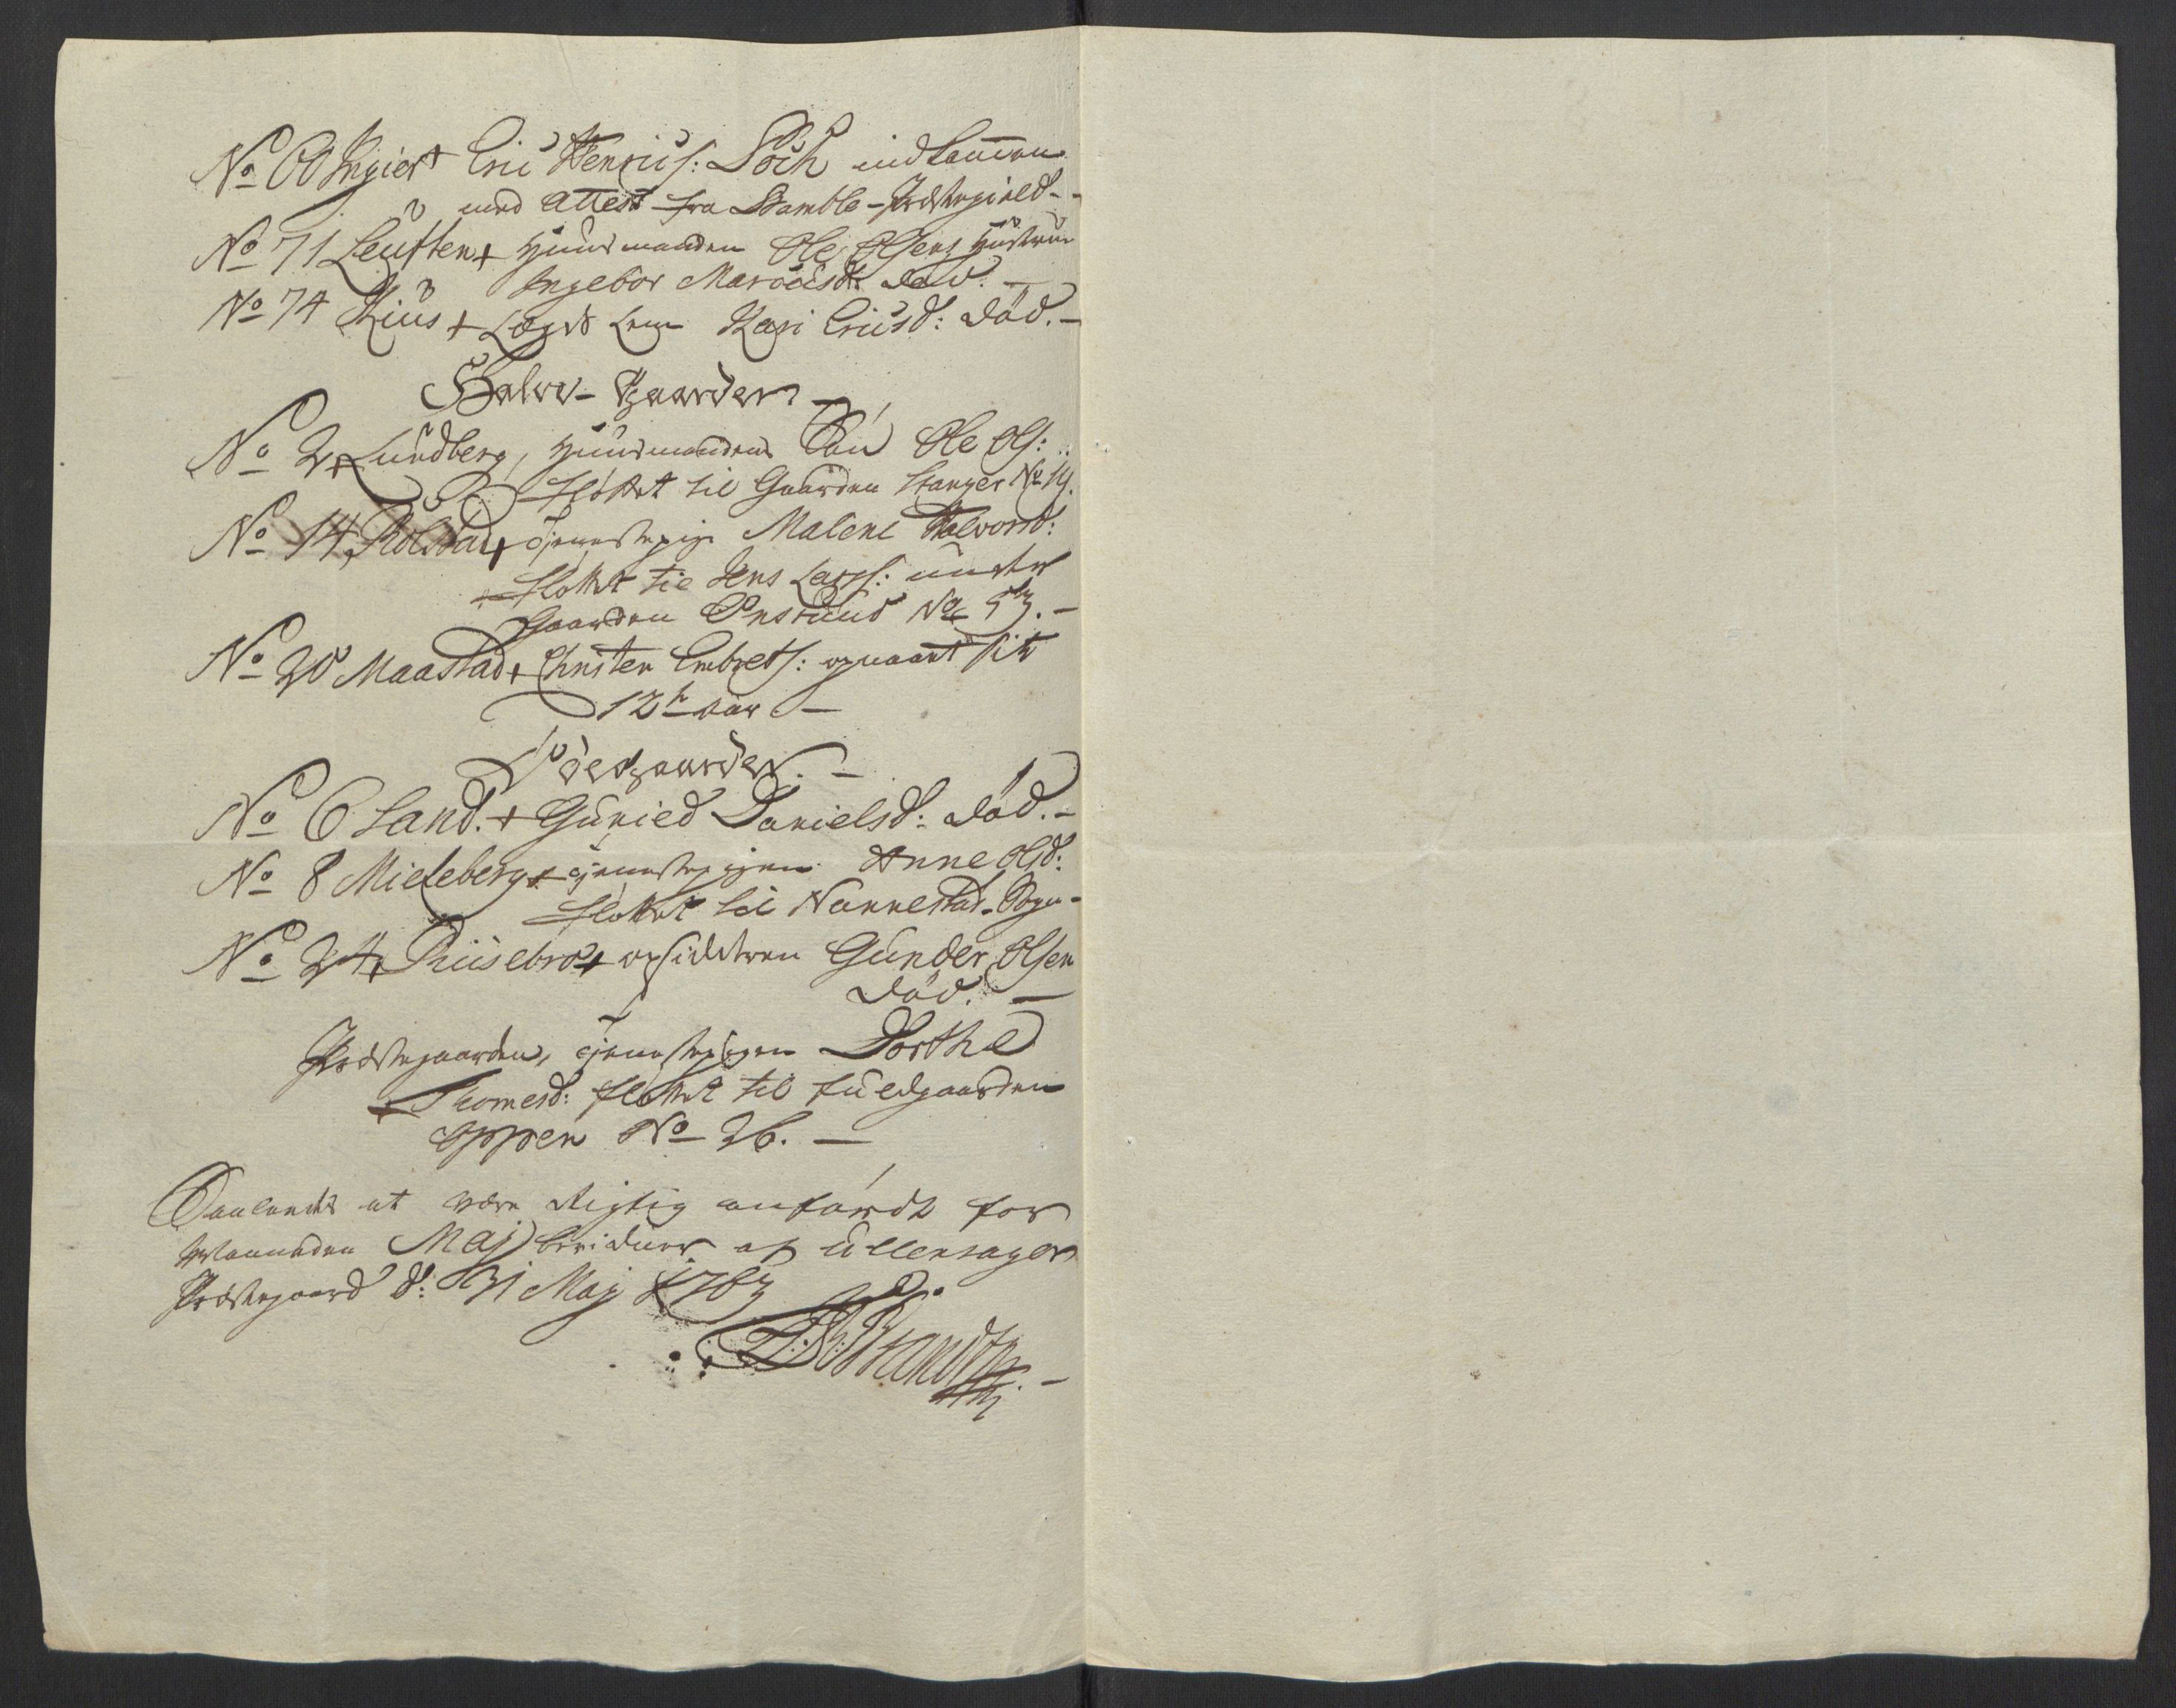 No 60 Ingier + Eric Henrics: Söeh indkommen
med Attest fra Bamble-Præstegield -
No 71 Leufsten + Huusmanden Ole Olsens Hustrue
Ingebor Marcusd: død. -
No 74 Kius + Lægds Lem Kari Ericsd: død. -
Halve-Gaarder -
No 2 + Lundberg, Huusmandens Søn Ole Ols:
fløttet til Gaarden Stanger No 19.
No 14 Rolstad + tjenestepige Malene Halvorsd:
+ fløttet til Jens Larss: under
Gaarden Onsrud No 53. -
No 20 Maastad + Christen Embrets: opnaaet sit
12te aar -
Ödegaarder. -
No 6 Land. + Guried Danielsd: död. -
No 8 Mieleberg + tjenestepigen Anne Olsd:
fløttet til Nannestad-Sogn -
No 24 + Riisebroe + opsidderen Gunder Olsen
död. -
Præstegaarden, tjenestepigen Dorthe
+ Thomesd: fløttet til fuldgaarden
Oppen No 26. -
Saaledes at være Rigtig anført for
Maaneden Maj bevidner af Ullensager
Præstegaard d: 31 Maj 1763
Brandt